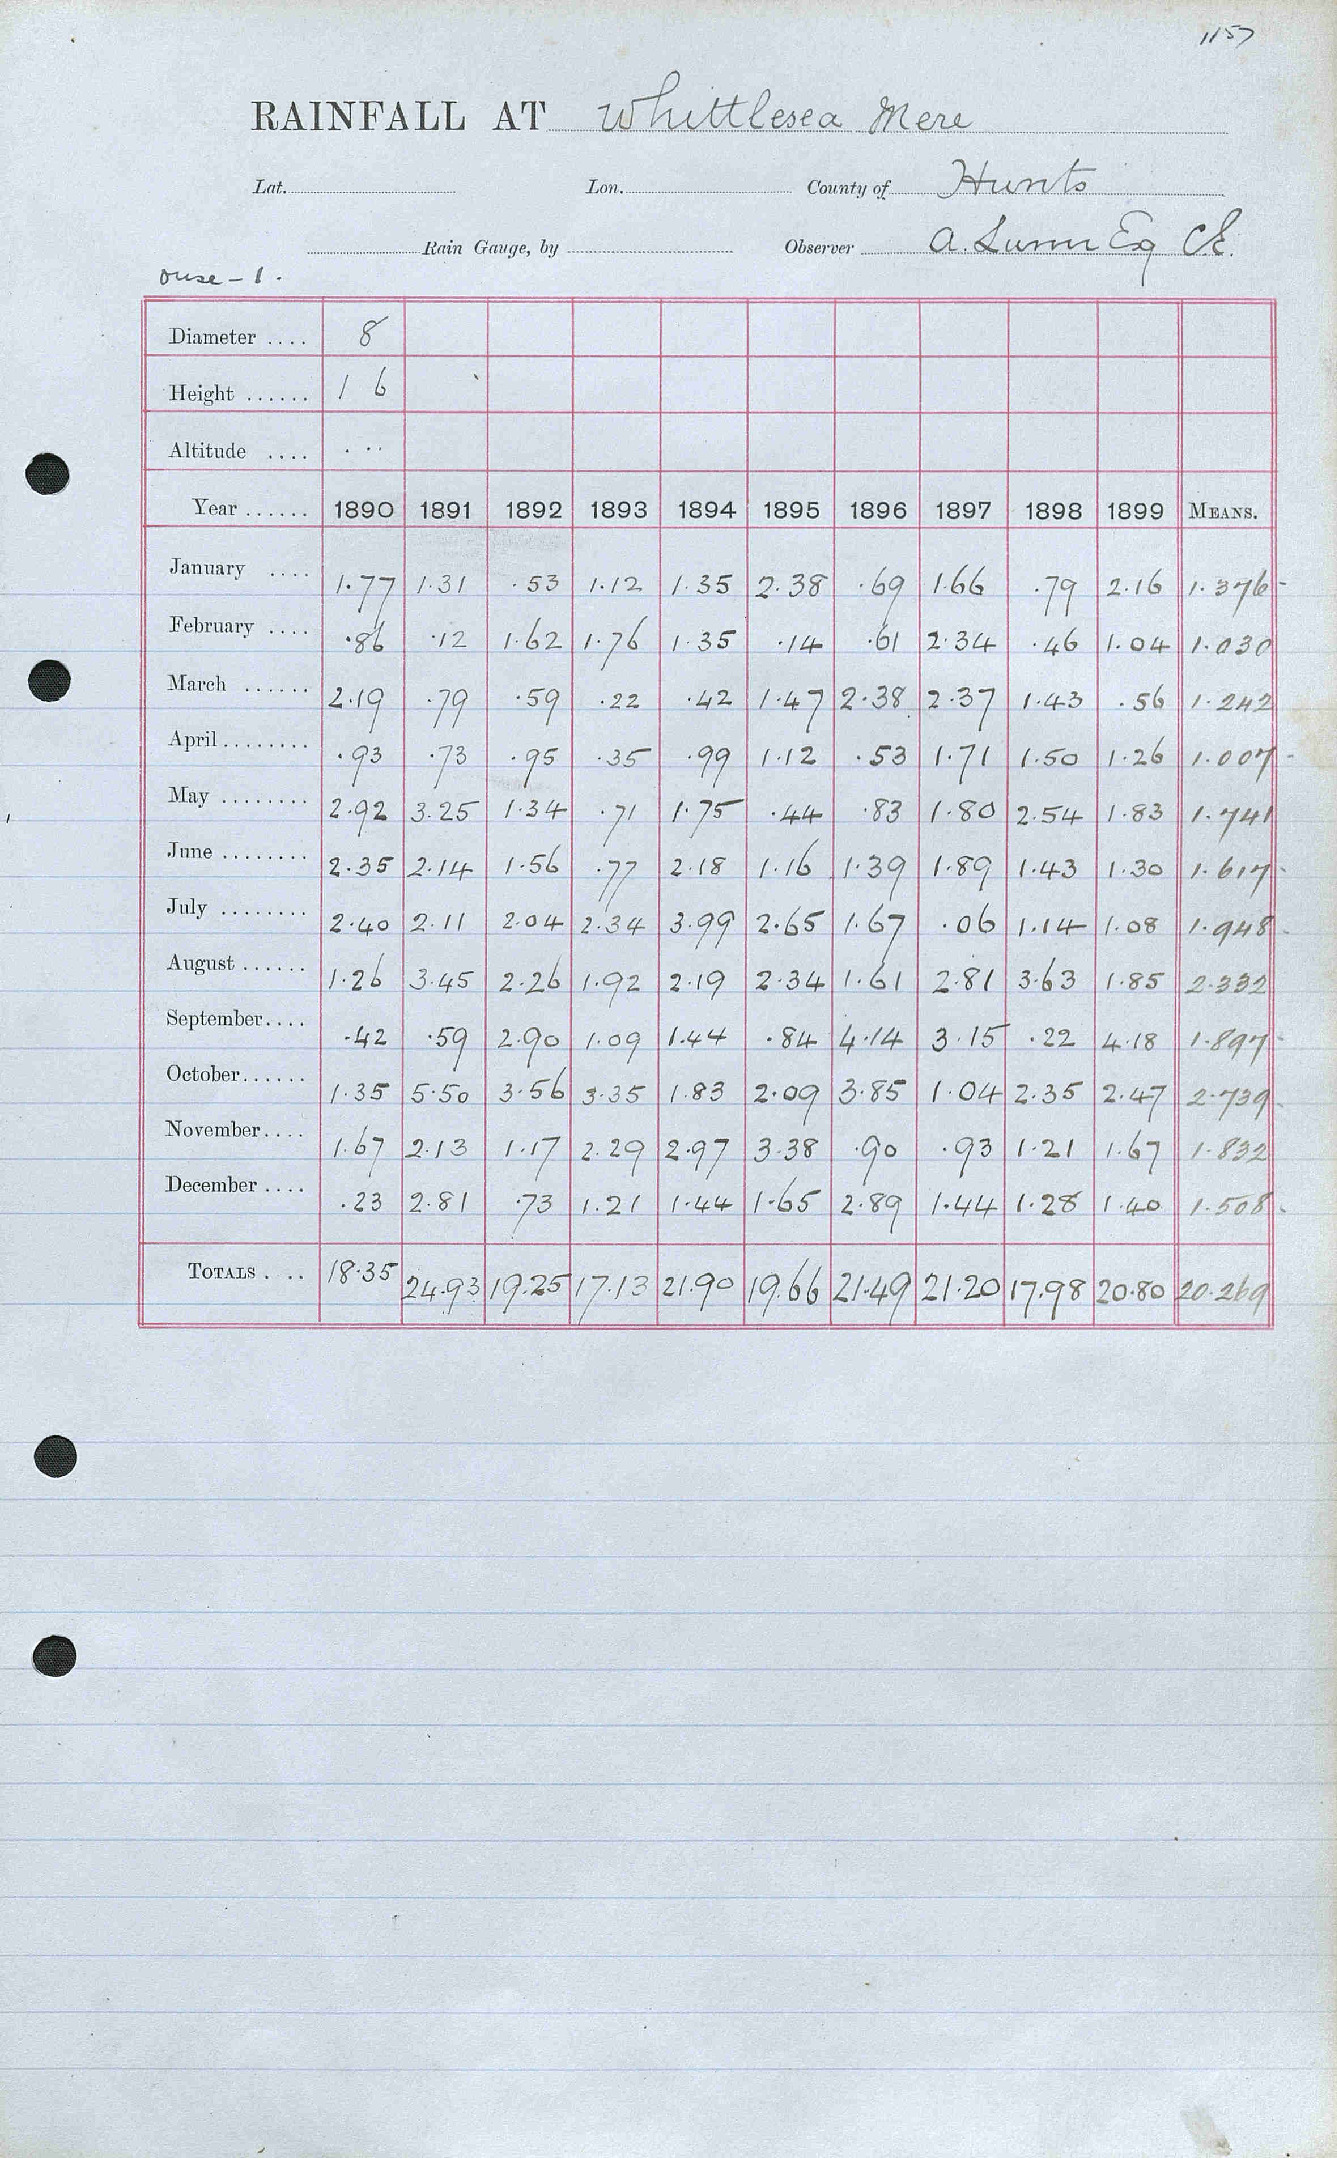 1157
RAINFALL AT Whittlesea Mere
Lat. Lon. County of Hunts
Rain Gauge, by Observer A. Lunn Esq CE.
Ouse - 1.
Diameter .... 8
Height ...... 1 6
Altitude .... . ..
Year ...... 1890 1891 1892 1893 1894 1895 1896 1897 1898 1899 MEANS.
January .... 1.77 1.31 .53 1.12 1.35 2.38 .69 1.66 .79 2.16 1.376
February .... .86 .12 1.62 1.76 1.35 .14 .61 2.34 .46 1.04 1.030
March ...... 2.19 .79 .59 .22 .42 1.47 2.38 2.37 1.43 .56 1.242
April ........ .93 .73 .95 .35 .99 1.12 .53 1.71 1.50 1.26 1.007
May ........ 2.92 3.25 1.34 .71 1.75 .44 .83 1.80 2.54 1.83 1.741
June ........ 2.35 2.14 1.56 .77 2.18 1.16 1.39 1.89 1.43 1.30 1.617
July ........ 2.40 2.11 2.04 2.34 3.99 2.65 1.67 .06 1.14 1.08 1.948
August ...... 1.26 3.45 2.26 1.92 2.19 2.34 1.61 2.81 3.63 1.85 2.332
September.... .42 .59 2.90 1.09 1.44 .84 4.14 3.15 .22 4.18 1.897
October...... 1.35 5.50 3.56 3.35 1.83 2.09 3.85 1.04 2.35 2.47 2.739
November.... 1.67 2.13 1.17 2.29 2.97 3.38 .90 .93 1.21 1.67 1.832
December .... .23 2.81 .73 1.21 1.44 1.65 2.89 1.44 1.28 1.40 1.508
TOTALS . .. 18.35 24.93 19.25 17.13 21.90 19.66 21.49 21.20 17.98 20.80 20.269